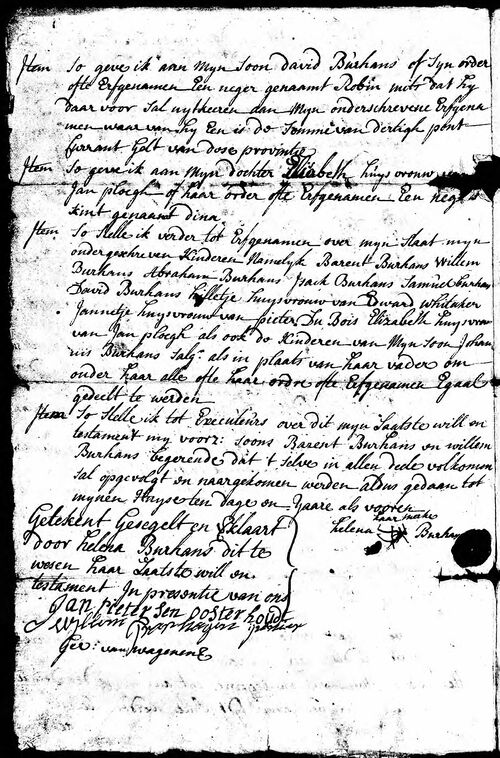 Item So geve ik aan mijn Soon david Burhans of Syn order
ofte Erfgenamen Een neger genaamt Robin mits dat hy
daar voor Sal uytkeeren aan Mijn onderschrevene Erfgena
men waar van hy Een is de Somme van dertigh pont
Currant Gelt van dese provintie
Item So geve ik aan Mijn dochter Elizabeth huysvrouw van
Jan ploegh of haar order ofte Erfgenamen Een negers
kint genaamt dina
Item So Stelle ik verder tot Erfgenamen over mijn Staat mijn
ondergeschreven Kinderen Namelyk Barent Burhans Willem
Burhans Abraham Burhans Isack Burhans Samuel burhans
David Burhans hilletje huysvrouw van Edward Whitaker
Jannetje huysvrouw van pieter Du Bois Elizabeth huysvrou
van Jan ploegh als ook de Kinderen van Mijn Soon Johan
nis Burhans Salgr. als in plaats van haar vader om
onder haar alle ofte haar ordre ofte Erfgenamen Egaal
gedeelt te werden
Item So Stelle ik tot Executeurs over dit mijn Laatste will en
testament my voorz: Soons Barent Burhans en willem
Burhans begerende dat 't Selve in allen deele volkomen
Sal opgevolgt en naargekomen werden aldus gedaan tot
mynen Huyse ten dage en Jaare als vooren
Getekent Gesegelt en Eklaart
door helena Burhans dit te
wesen haar Laatste will en
testament In presentie van ons
haar make
helena Burhans
Jan Pieter Sen oosterhoudt
Ger: van wagenen